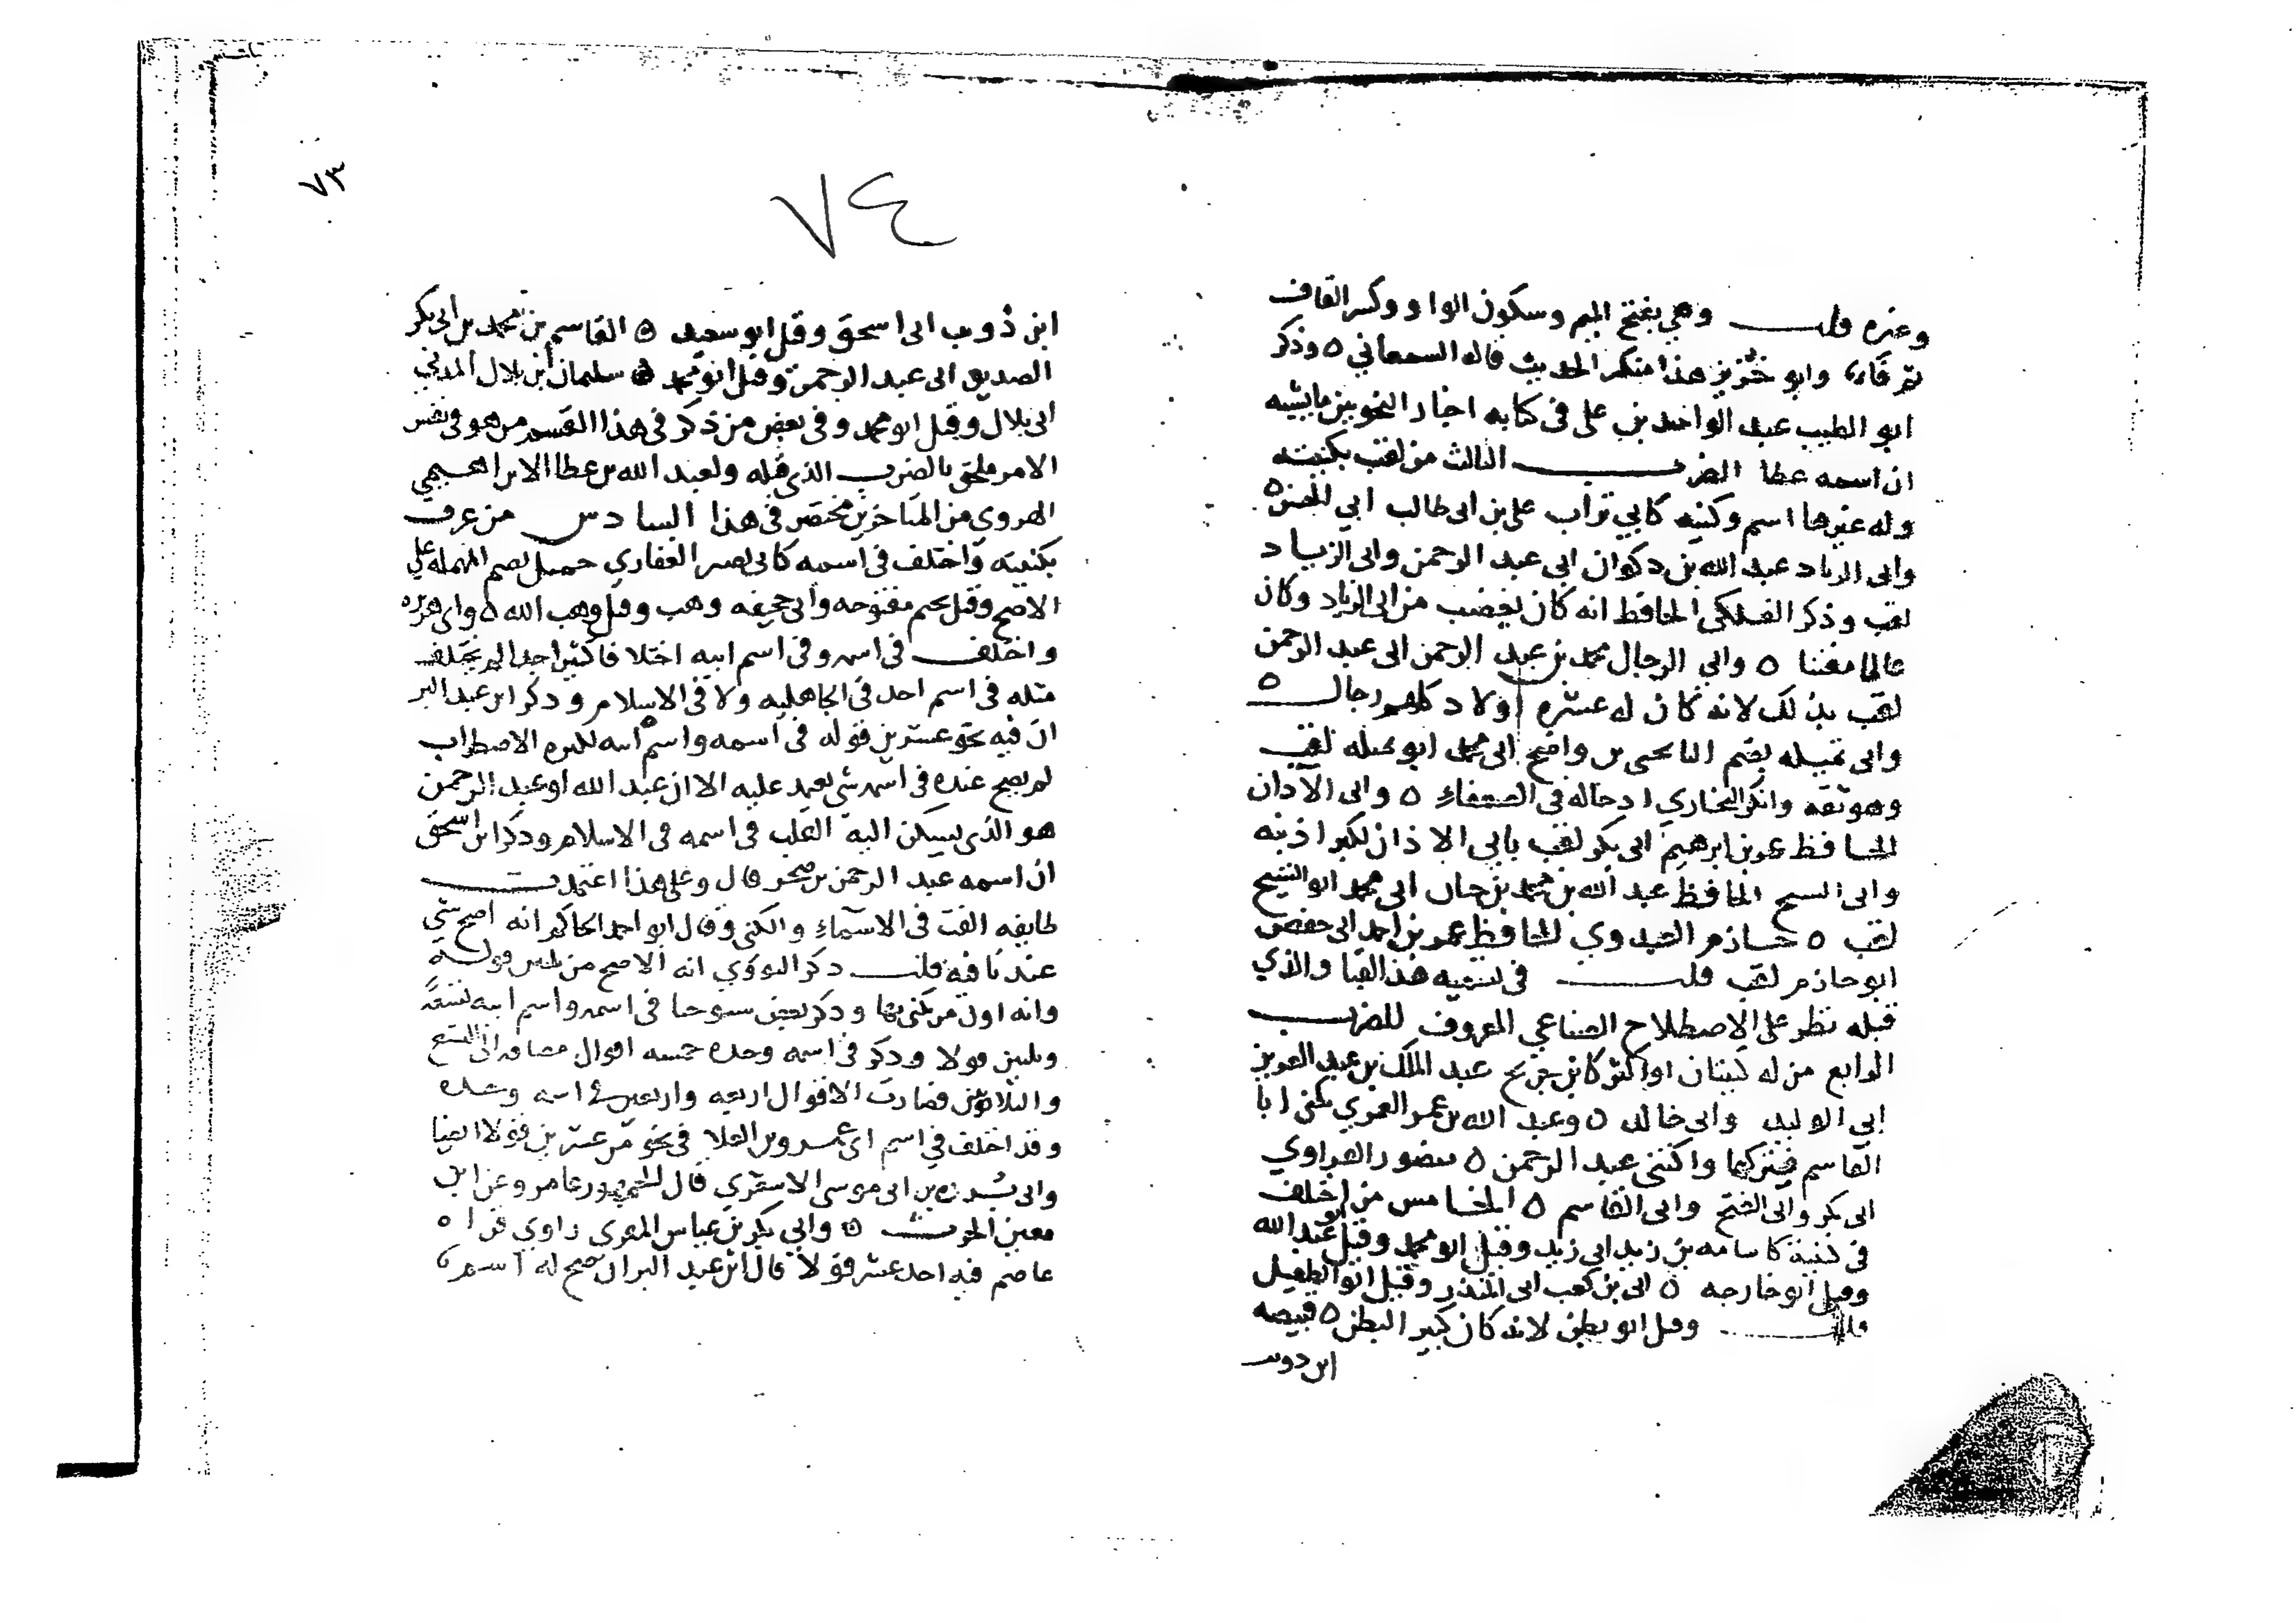 ٧٤
٧٣
وغيره قلت وهي بفتح الميم وسكون الواو وكسر القاف
ثم قاف وابو حريز هذا منكر الحديث قاله السمعاني ٥ وذكر
ابو الطيب عبد الواحد بن علي في كتابه اخبار النحويين
ان اسمه عطا الضرب الثالث من لقب بكنيته
وله غيرها اسم وكنيه كابي تراب علي بن ابي طالب ابي الحسن ٥
وابي الزناد عبد الله بن ذكوان ابي عبد الرحمن وابي الزناد
لقب وذكر الفلكي الحافظ انه كان يغضب من ابي الزناد وكان
عالما مفتنا ٥ وابي الرجال محمد بن عبد الرحمن ابي عبد الرحمن
لقب بذلك لانه كان له عشره اولاد كلهم رجال ٥
وابي تميله بضم التا يحيى بن واضح ابي محمد ابو تميله لقب
وهو ثقه وانكر البخاري ادخاله في الضعفاء ٥ وابي الاذان
الحافظ عمر بن ابرهيم ابي بكر لقب بابي الاذان لكبر اذنه
وابي الشيخ الحافظ عبد الله بن محمد بن حيان ابي محمد ابو الشيخ
لقب ٥ حازم العبدوي الحافظ عمر بن احمد ابي حفص
ابو حازم لقب قلت في تسميه هذا لقبا والذي
قبله نظر على الاصطلاح الصناعي المعروف الضرب
الرابع من له كنيتان او اكثر كابن جريج عبد الملك بن عبد العزيز
ابي الوليد وابي خالد ٥ وعبد الله بن عمر العمري يكنى ابا
القاسم فتركها واكتنى عبد الرحمن ٥ منصور الفراوي
ابي بكر وابي الفتح وابي القاسم ٥ الخامس من اختلف
في كنيته كاسامه بن زيد ابي زيد وقيل ابو محمد وقيل ابو عبد الله
وقيل ابو خارجه ٥ ابي بن كعب ابي المنذر وقيل ابو الطفيل
قلت وقيل ابو بطن لانه كان كبير البطن ٥ قبيصه
ابن ذويب
ابن ذويب ابي اسحق وقيل ابو سعيد ٥ القاسم بن محمد بن ابي بكر
الصديق ابي عبد الرحمن وقيل ابو محمد ٥ سليمان بن بلال المدني
ابي بلال وقيل ابو محمد وفي بعض من ذكر في هذا القسم من هو في نفس
الامر ملحق بالضرب الذي قبله ولعبد الله بن عطا الابراهيمي
الهروي من المتاخرين مختصر في هذا السادس من عرف
بكنيته واختلف في اسمه كابي بصره الغفاري حميل بضم المهمله على
الاصح وقيل بجيم مفتوحه وابي جحيفه وهب وقيل وهب الله ٥ وابي هريره
واختلف في اسمه وفي اسم ابيه اختلافا كثيرا جدا لم يختلف
مثله في اسم احد في الجاهليه ولا في الاسلام وذكر ابن عبد البر
ان فيه نحو عشرين قوله في اسمه واسم ابيه للكثره الاضطراب
لم يصح عنده في اسمه شي يعتمد عليه الا ان عبد الله او عبد الرحمن
هو الذي يسكن اليه القلب في اسمه في الاسلام وذكر ابن اسحق
ان اسمه عبد الرحمن بن صخر قال وعلى هذا اعتمدت
طايفه الفت في الاسماء والكنى وقال ابو احمد الحاكم انه اصح شي
عندنا فيه قلت ذكر النووي انه الاصح من ثلثين قولا
وانه اول من كني بها وذكر بعض شيوخنا في اسمه واسم ابيه تسعه
وثلثين قولا وذكر في اسمه وحده خمسه اقوال مضافه الى التسع
والثلاثين فصارت الاقوال اربعه واربعين في اسمه وحده
وقد اختلف في اسم ابي عمرو بن العلا في نحو من عشرين قولا ايضا
وابي برده بن ابي موسى الاشعري قال الجمهور عامر وعن ابن
معين الحرث ٥ وابي بكر بن عياش المقري راوي قراه
عاصم فيه احد عشر قولا قال ابن عبد البر ان صح له اسم